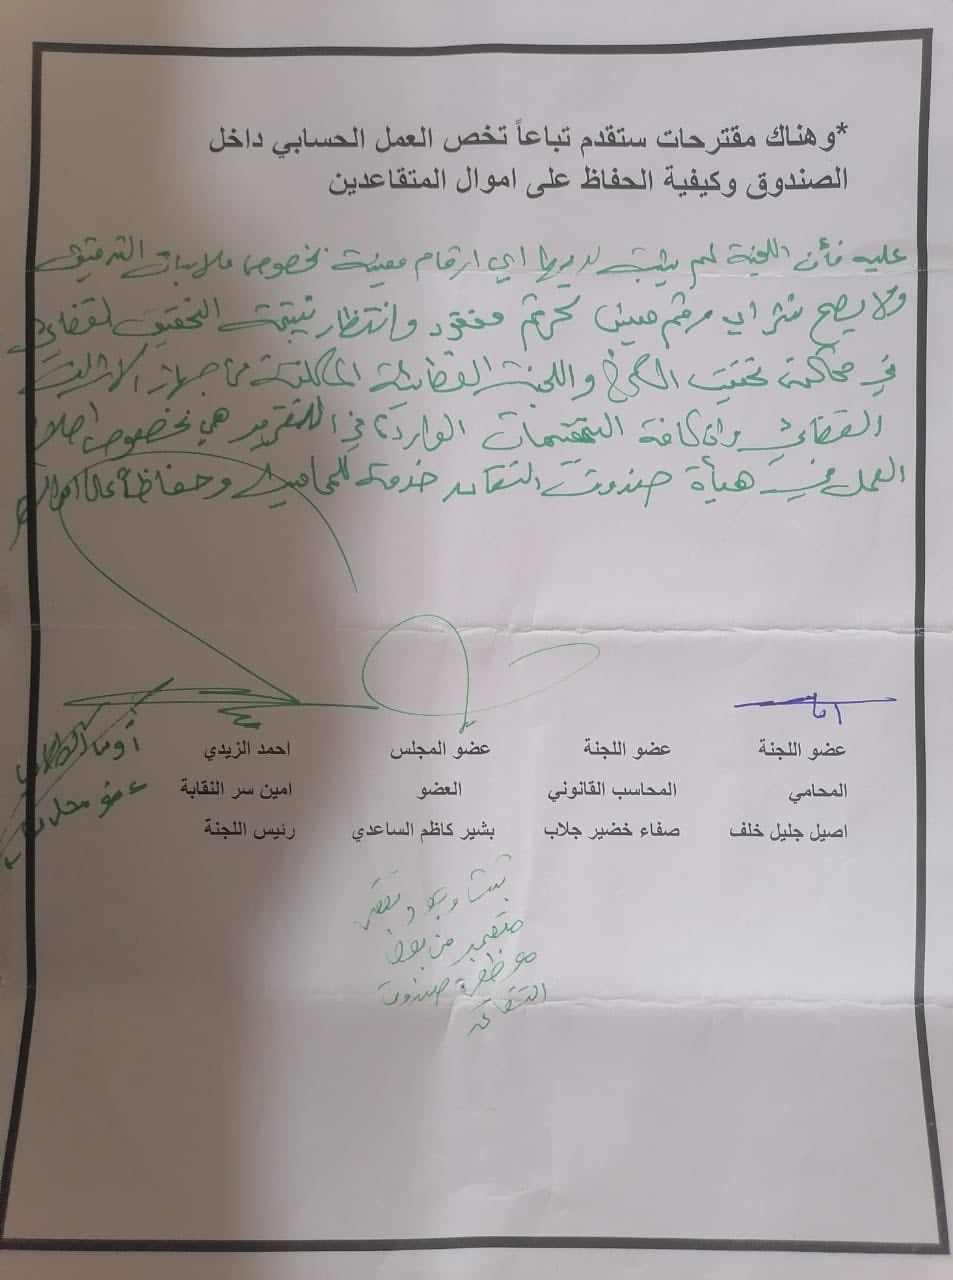 *وهناك مقترحات ستقدم تباعاً تخص العمل الحسابي داخل
الصندوق وكيفية الحفاظ على اموال المتقاعدين
عليه فأن اللجنة لم يثبت لديها اي ارقام معينة بخصوص ملابسات التدقيق
ولا يصح نشر اي رقم معين كرقم مفقود وانتظار نتيجة التحقيق القضائي
في محكمة تحقيق الكرخ واللجنة القضائية المكلفة من جهاز الاشراف
القضائي وان كافة التقييمات الواردة في التقرير هي بخصوص اصلاح
العمل في هيأة صندوق التقاعد خدمة للمحامين وحفاظا على اموالهم
عضو اللجنة
المحامي
اصيل جليل خلف
عضو اللجنة
المحاسب القانوني
صفاء خضير جلاب
عضو المجلس
العضو
بشير كاظم الساعدي
احمد الزيدي
امين سر النقابة
رئيس اللجنة
عضو
تثبت وجود تقصير
من بعض
موظفي صندوق
التقاعد